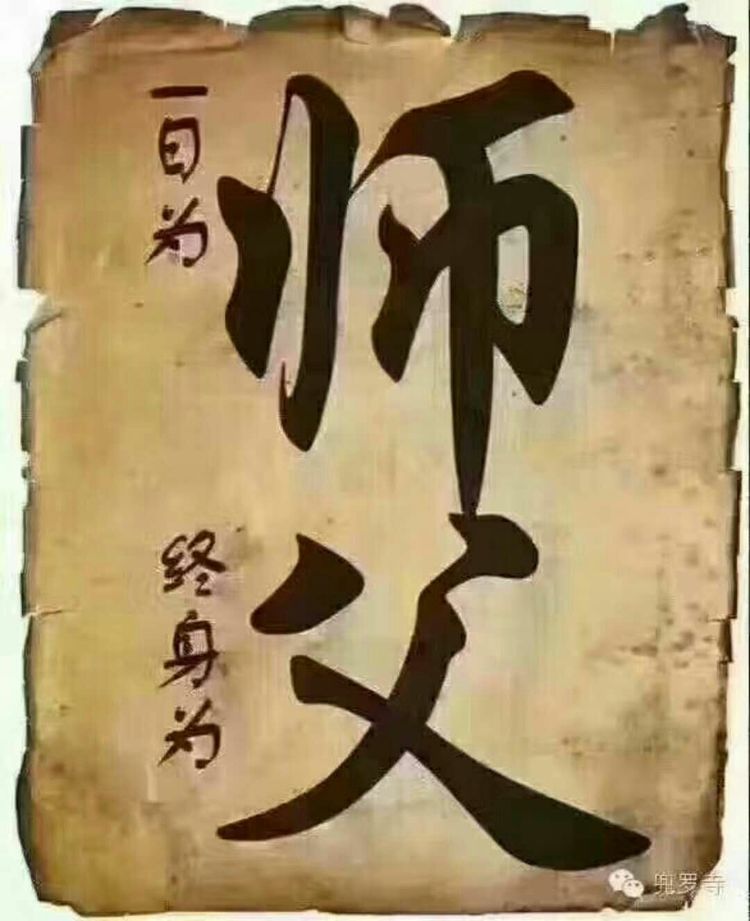 一日为
师
终身为
父
兜罗寺